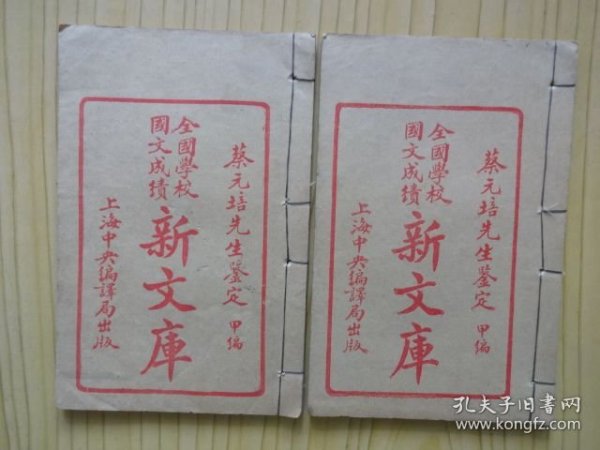 蔡元培先生鉴定 甲编
全國學校
國文成績
新文庫
上海中央編譯局出版
蔡元培先生鉴定 甲编
全國學校
國文成績
新文庫
上海中央編譯局出版
孔夫子旧書网
www.kongfz.com